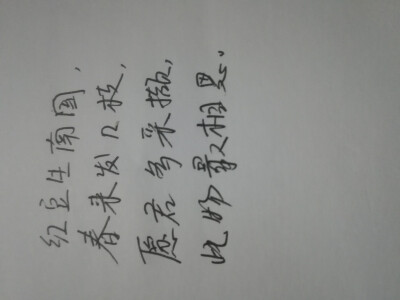 红豆生南国,
春来发几枝,
愿君多采撷,
此物最相思。